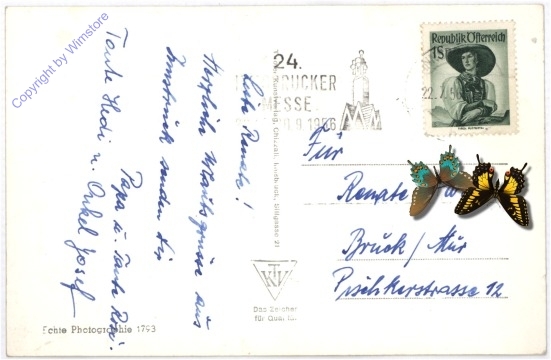 Copyright by Wimstore
Liebe Renate!
Herzliche Urlaubsgrüsse aus
Innsbruck senden dir
Papa u. Tante Resi.
Tante Hedi u. Onkel Josef
Echte Photographie 1793
Chizzali, Innsbruck, Sillgasse 21
TKV
Das Zeichen
für
24.
INNSBRUCKER
MESSE
9.1956
Republik Österreich
1S
22.
Für
Renate
Bruck/Mur
Pischkerstrasse 12